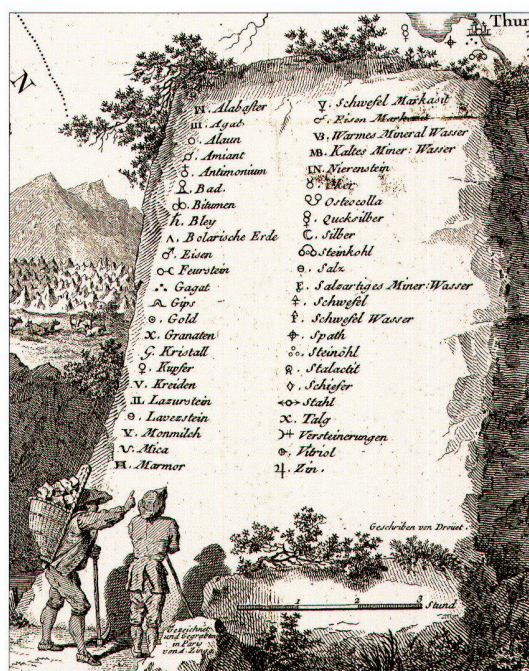 Thur
N
VI. Alabaster
III. Agat
Alaun
Amiant
Antimonium
Bad
Bitumen
ħ. Bley
Λ. Bolarische Erde
♂. Eisen
Feurstein
Gagat
Gips
☉. Gold
X. Granaten
G. Kristall
♀. Kupfer
V. Kreiden
II. Lazurstein
Θ. Lavezstein
Y. Monmilch
V. Mica
Marmor
Schwefel Markasit
Eisen
VB. Warmes Mineral Wasser
MB. Kaltes Miner: Wasser
IN. Nierenstein
Osteocolla
Qucksilber
☾. Silber
Steinkohl
Θ. Salz
Salzartiges Miner: Wasser
Schwefel
Schwefel Wasser
Spath
Steinöhl
Stalactit
◊. Schiefer
Stahl
X. Talg
Versteinerungen
Vitriol
♃. Zin.
Geschriben von Drouet.
1 2 3 Stund
Gezeichnet
und Gegraben
in Paris
von A. Zingg